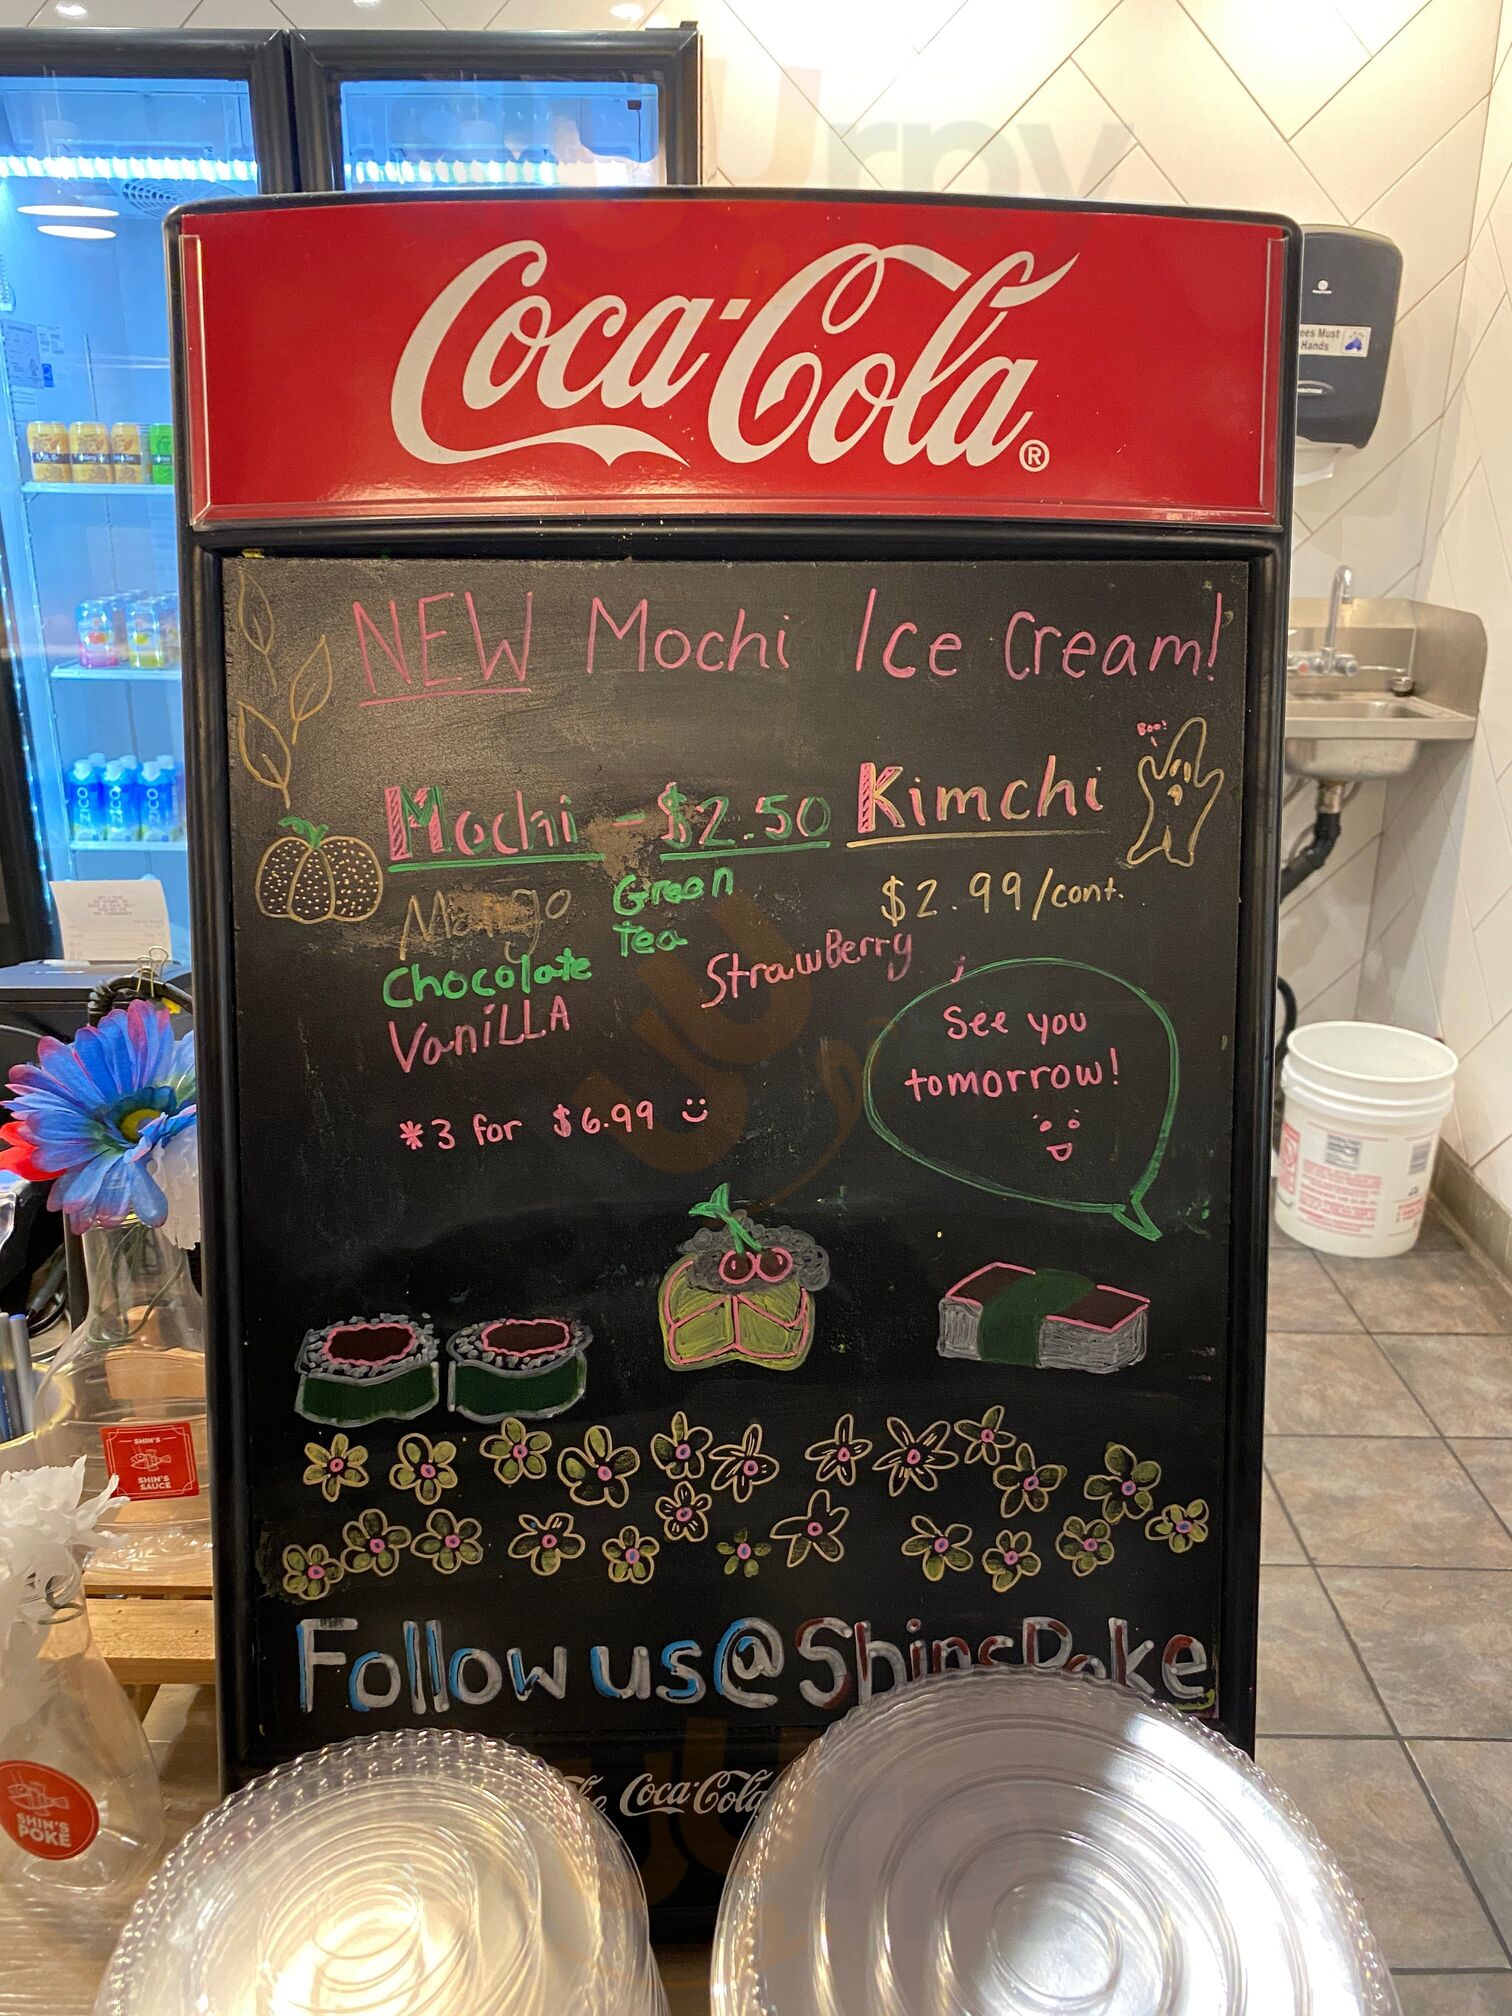 Coca-Cola®
NEW Mochi Ice Cream!
Boo!
Mochi - $2.50
Mango
Green
Tea
Chocolate
StrawBerry
VaniLLA
*3 for $6.99
Kimchi
$2.99/cont.
See you
tomorrow!
Follow us@ShinsPoke
Coca-Cola
SHIN'S
SHIN'S
SAUCE
SHIN'S
POKÉ
ees Must
Hands
ZICO
ZICO
ZICO